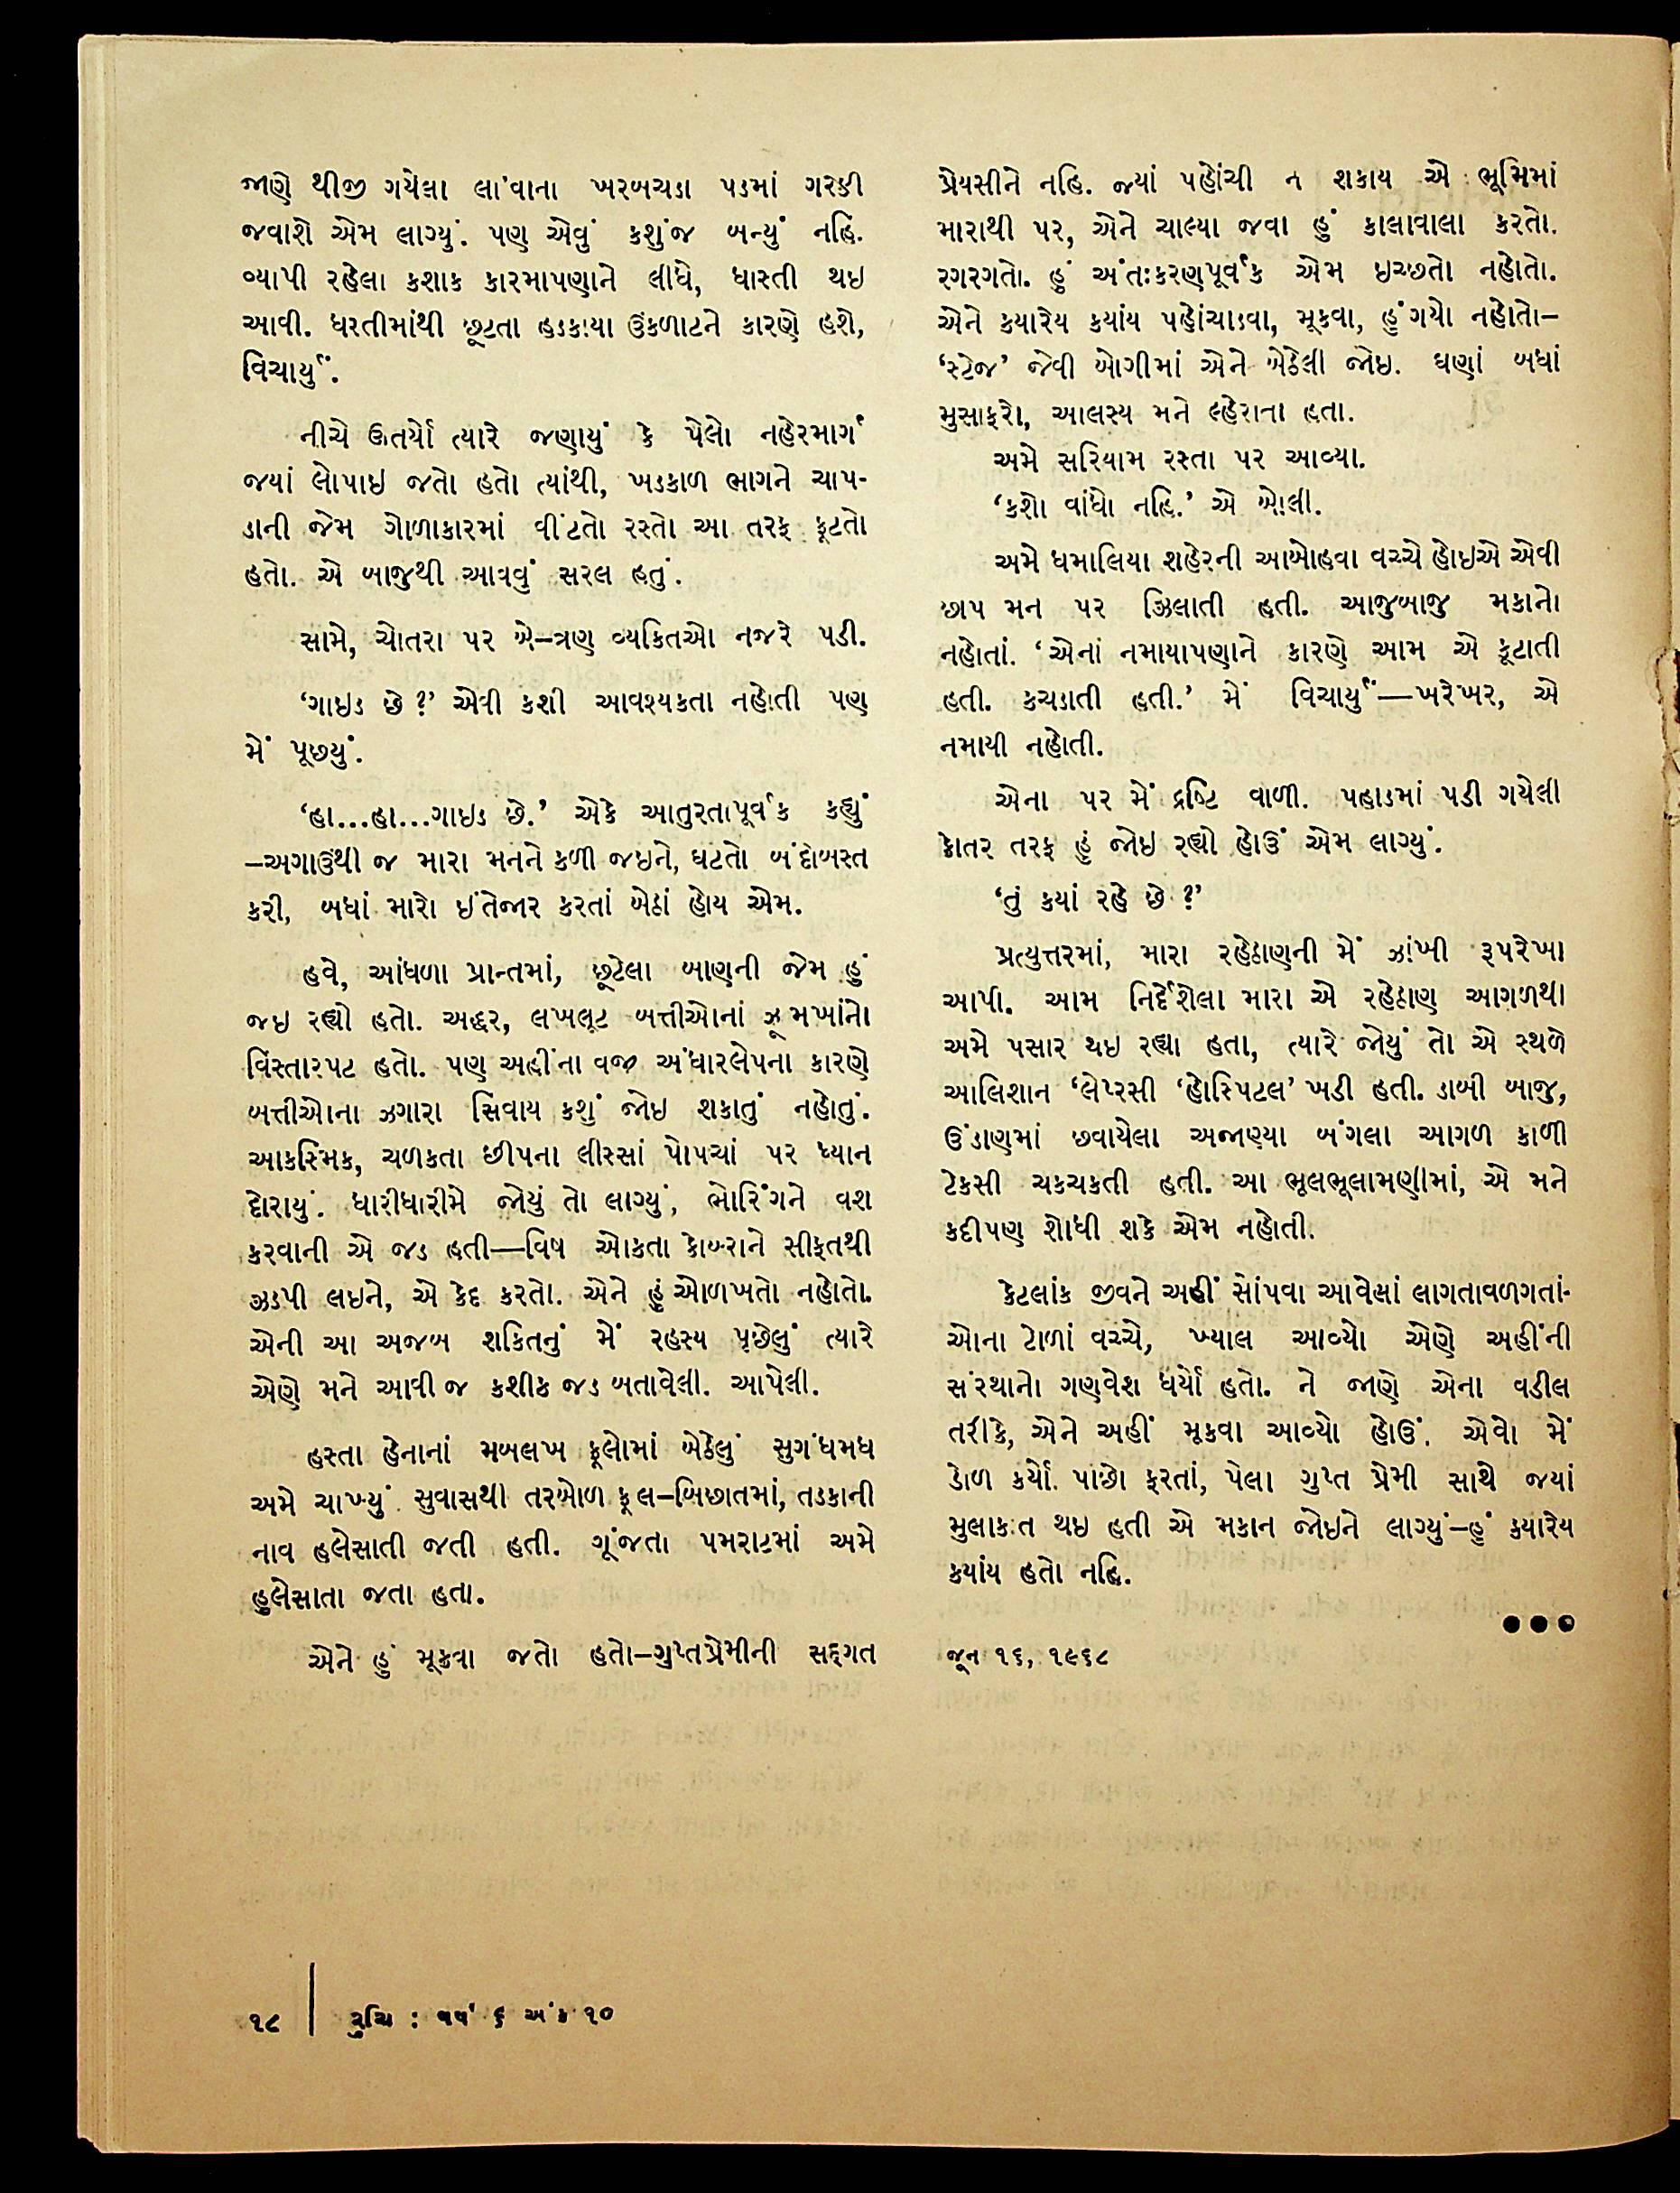 જાણે થીજી ગયેલા લા'વાના ખરબચડા પડમાં ગરકી
જવાશે એમ લાગ્યું. પણ એવું કશુંજ બન્યું નહિ.
વ્યાપી રહેલા કશાક કારમાપણાને લીધે, ધાસ્તી થઇ
આવી. ધરતીમાંથી છૂટતા હડકાયા ઉકળાટને કારણે હશે,
વિચાર્યું.
નીચે ઊતર્યો ત્યારે જણાયું કે પેલો નહેરમાર્ગ
જયાં લોપાઇ જતો હતો ત્યાંથી, ખડકાળ ભાગને ચાપ-
ડાની જેમ ગોળાકારમાં વીંટતો રસ્તો આ તરફ ફૂટતો
હતો. એ બાજુથી આવવું સરલ હતું.
સામે, ચોતરા પર બે–ત્રણ વ્યકિતઓ નજરે પડી.
‘ગાઇડ છે ?’ એવી કશી આવશ્યકતા નહોતી પણ
મેં પૂછયું.
‘હા...હા...ગાઇડ છે.’ એકે આતુરતાપૂર્વક કહ્યું
–અગાઉથી જ મારા મનને કળી જઇને, ઘટતો બંદોબસ્ત
કરી, બધાં મારો ઇંતેજાર કરતાં બેઠાં હોય એમ.
હવે, આંધળા પ્રાન્તમાં, છૂટેલા બાણની જેમ હું
જઇ રહ્યો હતો. અદ્ધર, લખલૂટ બત્તીઓનાં ઝૂમખાંનો
વિસ્તારપટ હતો. પણ અહીંના વજ્ર અંધારલેપના કારણે
બત્તીઓના ઝગારા સિવાય કશું જોઇ શકાતું નહોતું.
આકસ્મિક, ચળકતા છીપના લીસ્સાં પોપચાં પર ધ્યાન
દોરાયું. ધારીધારીમે જોયું તો લાગ્યું, ભોરિંગને વશ
કરવાની એ જડ હતી—વિષ ઓકતા કોબરાને સીફતથી
ઝડપી લઇને, એ કેદ કરતો. એને હું ઓળખતો નહોતો.
એની આ અજબ શકિતનું મેં રહસ્ય પૂછેલું ત્યારે
એણે મને આવી જ કશીક જડ બતાવેલી. આપેલી.
હસ્તા હેનાનાં મબલખ ફૂલોમાં બેઠેલું સુગંધમધ
અમે ચાખ્યું. સુવાસથી તરબોળ ફૂલ–બિછાતમાં, તડકાની
નાવ હલેસાતી જતી હતી. ગૂંજતા પમરાટમાં અમે
હુલેસાતા જતા હતા.
એને હું મૂકવા જતો હતો–ગુપ્તપ્રેમીની સદ્દગત
પ્રેયસીને નહિ. જ્યાં પહોંચી ન શકાય એ ભૂમિમાં
મારાથી પર, એને ચાલ્યા જવા હું કાલાવાલા કરતો.
રગરગતો. હું અંતઃકરણપૂર્વક એમ ઇચ્છતો નહોતો.
એને કયારેય કયાંય પહોંચાડવા, મૂકવા, હું ગયો નહોતો–
‘સ્ટેજ’ જેવી બોગીમાં એને બેઠેલી જોઇ. ઘણાં બધાં
મુસાફરો, આલસ્ય મને લ્હેરાતા હતા.
અમે સરિયામ રસ્તા પર આવ્યા.
‘કશો વાંધો નહિ.’ એ બોલી.
અમે ધમાલિયા શહેરની આબોહવા વચ્ચે હોઇએ એવી
છાપ મન પર ઝિલાતી હતી. આજુબાજુ મકાનો
નહોતાં. ‘એનાં નમાયાપણાને કારણે આમ એ કૂટાતી
હતી. કચડાતી હતી.’ મેં વિચાર્યું—ખરેખર, એ
નમાયી નહોતી.
એના પર મેં દ્રષ્ટિ વાળી. પહાડમાં પડી ગયેલી
કોતર તરફ હું જોઇ રહ્યો હોઉં એમ લાગ્યું.
‘તું કયાં રહે છે ?’
પ્રત્યુત્તરમાં, મારા રહેઠાણની મેં ઝાંખી રૂપરેખા
આપી. આમ નિર્દેશેલા મારા એ રહેઠાણ આગળથી
અમે પસાર થઇ રહ્યા હતા, ત્યારે જોયું તો એ સ્થળે
આલિશાન ‘લેપ્રસી ‘હોસ્પિટલ’ ખડી હતી. ડાબી બાજુ,
ઉંડાણમાં છવાયેલા અજાણ્યા બંગલા આગળ કાળી
ટેકસી ચકચકતી હતી. આ ભૂલભૂલામણીમાં, એ મને
કદીપણ શોધી શકે એમ નહોતી.
કેટલાંક જીવને અહીં સોંપવા આવેલાં લાગતાવળગતાં-
ઓના ટોળાં વચ્ચે, ખ્યાલ આવ્યો એણે અહીંની
સંસ્થાનો ગણવેશ ધર્યો હતો. ને જાણે એના વડીલ
તરીકે, એને અહીં મૂકવા આવ્યો હોઉં. એવો મેં
ડોળ કર્યો. પાછો ફરતાં, પેલા ગુપ્ત પ્રેમી સાથે જયાં
મુલાકાત થઇ હતી એ મકાન જોઇને લાગ્યું–હું કયારેય
કયાંય હતો નહિ.
●●●
જૂન ૧૬, ૧૯૬૮
૧૮ | રુચિ : વર્ષ ૬ અંક ૧૦